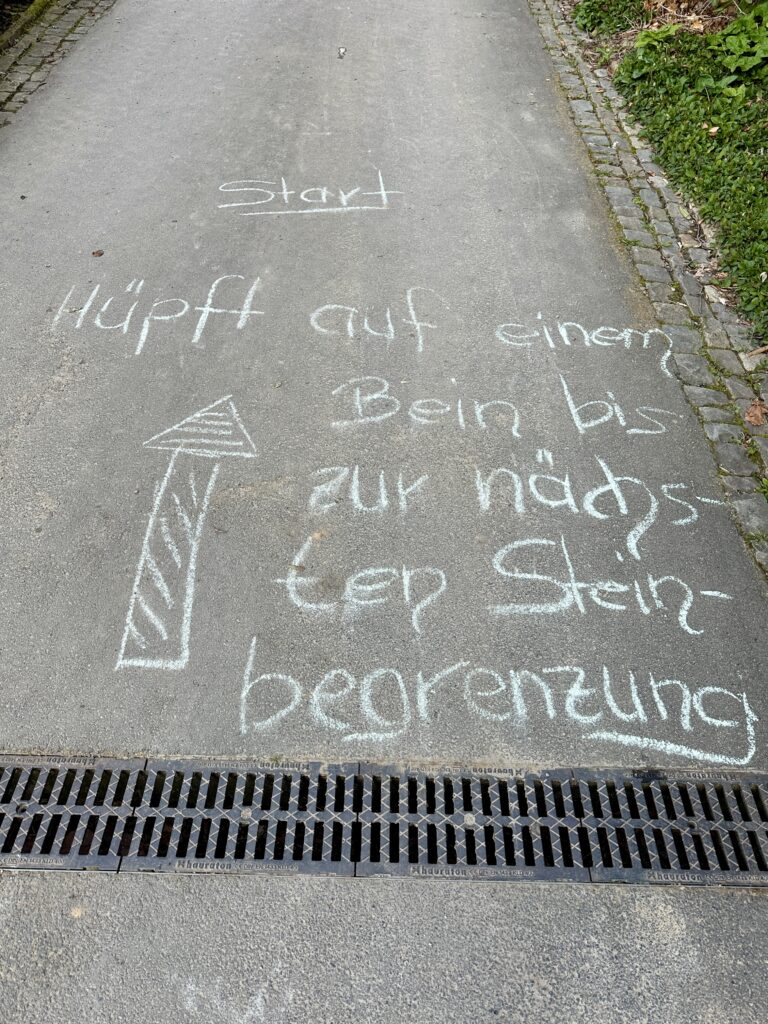 Start
Hüpft auf einem
Bein bis
zur nächs-
ten Stein-
begrenzung
hauraton
hauraton
hauraton
hauraton